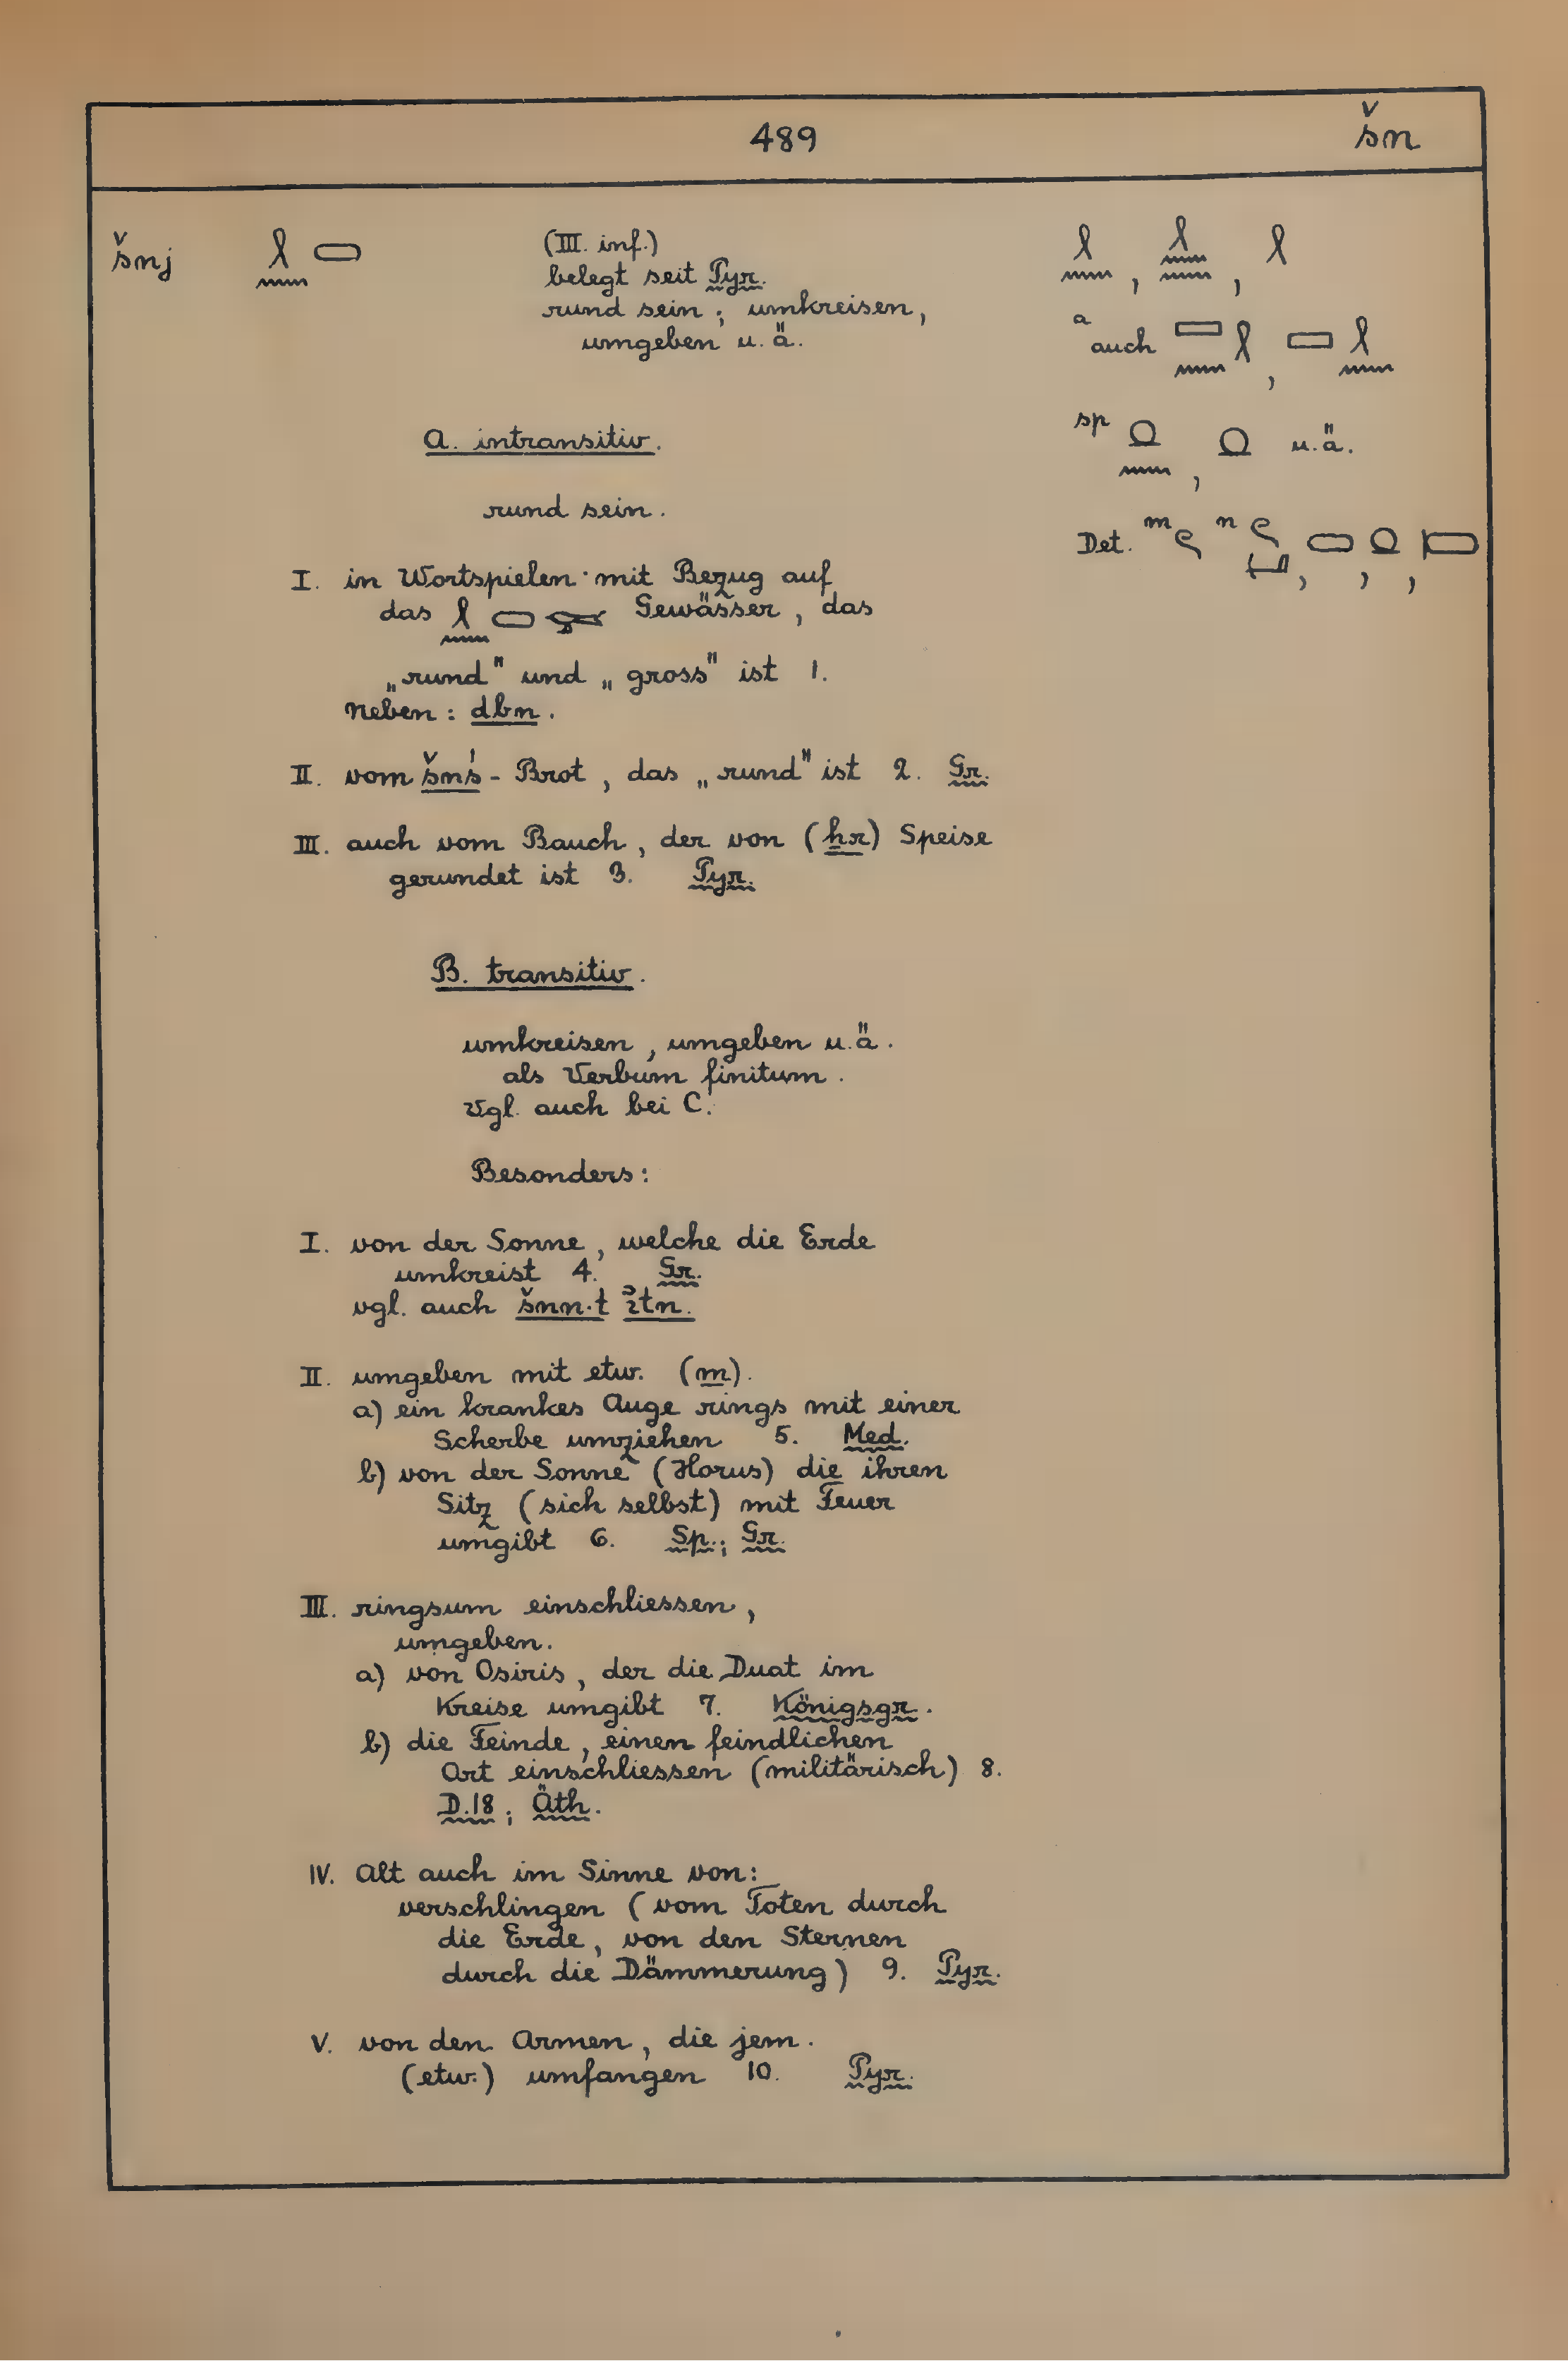 489
šn
šnj 𓍲𓈖𓍷
(III. inf.)
belegt seit Pyr.
rund sein; umkreisen,
umgeben u. ä.
a auch
sp u.ä.
Det. m n
A. intransitiv.
rund sein.
I. in Wortspielen mit Bezug auf
das Gewässer, das
„rund" und „gross" ist 1.
Neben: dbn.
II. vom šnś-Brot, das „rund" ist 2. Gr.
III. auch vom Bauch, der von (ẖr) Speise
gerundet ist 3. Pyr.
B. transitiv.
umkreisen, umgeben u.ä.
als Verbum finitum.
Vgl. auch bei C.
Besonders:
I. von der Sonne, welche die Erde
umkreist 4. Gr.
vgl. auch šnn·t ἰtn.
II. umgeben mit etw. (m).
a) ein krankes Auge rings mit einer
Scherbe umziehen 5. Med.
b) von der Sonne (Horus) die ihren
Sitz (sich selbst) mit Feuer
umgibt 6. Sp.; Gr.
III. ringsum einschliessen,
umgeben.
a) von Osiris, der die Duat im
Kreise umgibt 7. Königsgr.
b) die Feinde, einen feindlichen
Ort einschliessen (militärisch) 8.
D.18; Äth.
IV. Alt auch im Sinne von:
verschlingen (vom Toten durch
die Erde, von den Sternen
durch die Dämmerung) 9. Pyr.
V. von den Armen, die jem.
(etw.) umfangen 10. Pyr.